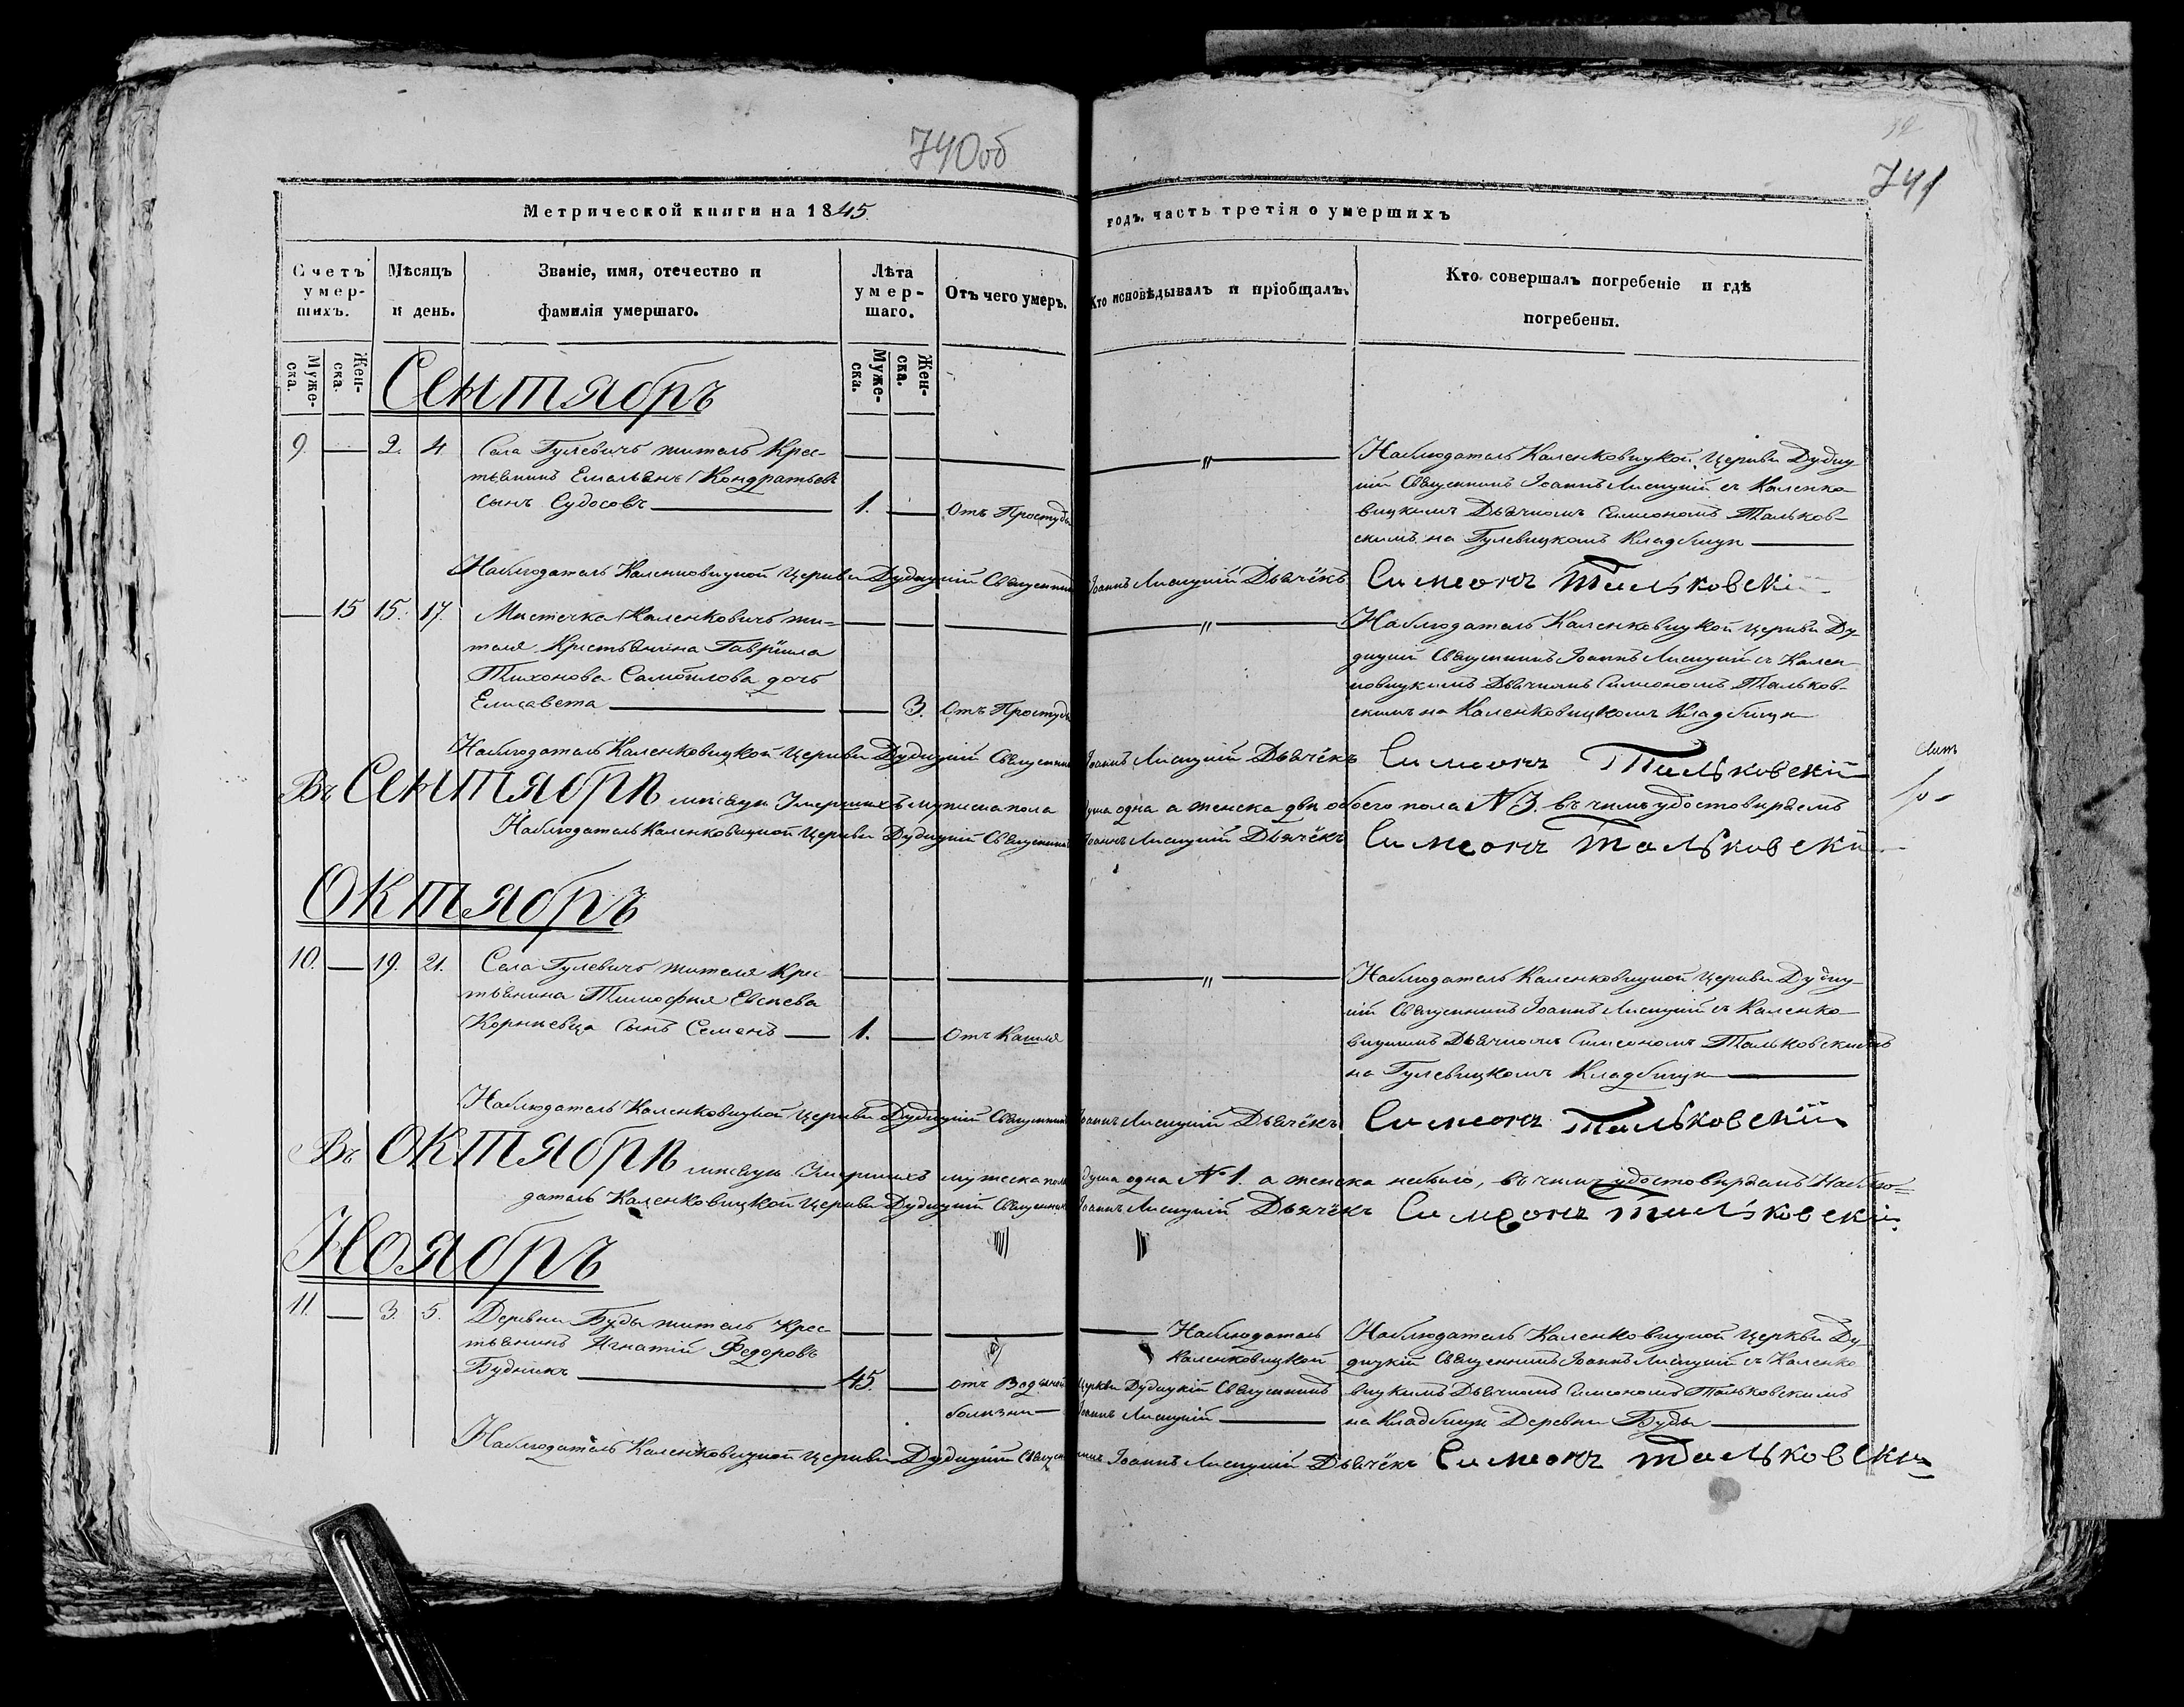 740об
39
741
Метрической книги на 1845.
годъ. часть третія о умершихъ
Счетъ умер-шихъ.
Мѣсяцъ и день.
Званіе, имя, отечество и фамилія умершаго.
Лѣта умер-шаго.
Отъ чего умеръ.
Кто исповѣдывалъ и пріобщалъ.
Кто совершалъ погребеніе и гдѣ погребены.
Муже-ска.
Жен-ска.
Муже-ска.
Жен-ска.
Сентябрь
9. — 2. 4
Села Гулевичъ житель Крес-
тьянинъ Емельянъ Кондратьевъ
сынъ Судосовъ — 1. — Отъ Простуды
Наблюдатель Каленковицкой Церкви Дудиц-
кій Священникъ Іоаннъ Лисицкій съ Каленко-
вицкимъ Дьячкомъ Симеономъ Тальков-
скимъ на Гулевицкомъ Кладбищѣ —
Наблюдатель Каленковицкой Церкви Дудицкій Священникъ Іоаннъ Лисицкій Дьячёкъ Симеонъ Тальковскій
— 15 15. 17.
Мистечка Каленковичъ жи-
теля Крестьянина Гавріила
Тихонова Самойлова дочь
Елисавета — 3. Отъ Простуды
Наблюдатель Каленковицкой Церкви Ду-
дицкій Священникъ Іоаннъ Лисицкій съ Кален-
ковицкимъ Дьячкомъ Симеономъ Тальков-
скимъ на Каленковицкомъ Кладбищѣ
Наблюдатель Каленковицкой Церкви Дудицкій Священникъ Іоаннъ Лисицкій Дьячёкъ Симеонъ Тальковскій
Въ Сентябрѣ мѣсяцѣ Умершихъ мужеска пола душа одна а женска двѣ обоего пола № 3. въ чемъ удостовѣряемъ
Наблюдатель Каленковицкой Церкви Дудицкій Священникъ Іоаннъ Лисицкій Дьячёкъ Симеонъ Тальковскій
Октябрь
10. — 19. 21.
Села Гулевичъ жителя Крес-
тьянина Тимофея Евсѣева
Корнѣевца сынъ Семенъ — 1. — Отъ Кашля
Наблюдатель Каленковицкой Церкви Дудиц-
кій Священникъ Іоаннъ Лисицкій съ Каленко-
вицкимъ Дьячкомъ Симеономъ Тальковскимъ
на Гулевицкомъ Кладбищѣ —
Наблюдатель Каленковицкой Церкви Дудицкій Священникъ Іоаннъ Лисицкій Дьячёкъ Симеонъ Тальковскій
Въ Октябрѣ мѣсяцѣ Умершихъ мужеска пола душа одна № 1. а женска небыло, въ чемъ удостовѣряемъ Наблю-
датель Каленковицкой Церкви Дудицкій Священникъ Іоаннъ Лисицкій Дьячёкъ Симеонъ Тальковскій
Ноябрь
11. — 3. 5.
Деревни Буды житель Крес-
тьянинъ Игнатій Федоровъ
Будникъ — 45. — отъ Водяной
болѣзни —
Наблюдатель
Каленковицкой
Церкви Дудицкій Священникъ
Іоаннъ Лисицкій —
Наблюдатель Каленковицкой Церкви Ду-
дицкій Священникъ Іоаннъ Лисицкій съ Каленко-
вицкимъ Дьячкомъ Симеономъ Тальковскимъ
на Кладбищѣ Деревни Буды —
Наблюдатель Каленковицкой Церкви Дудицкій Священникъ Іоаннъ Лисицкій Дьячёкъ Симеонъ Тальковскій